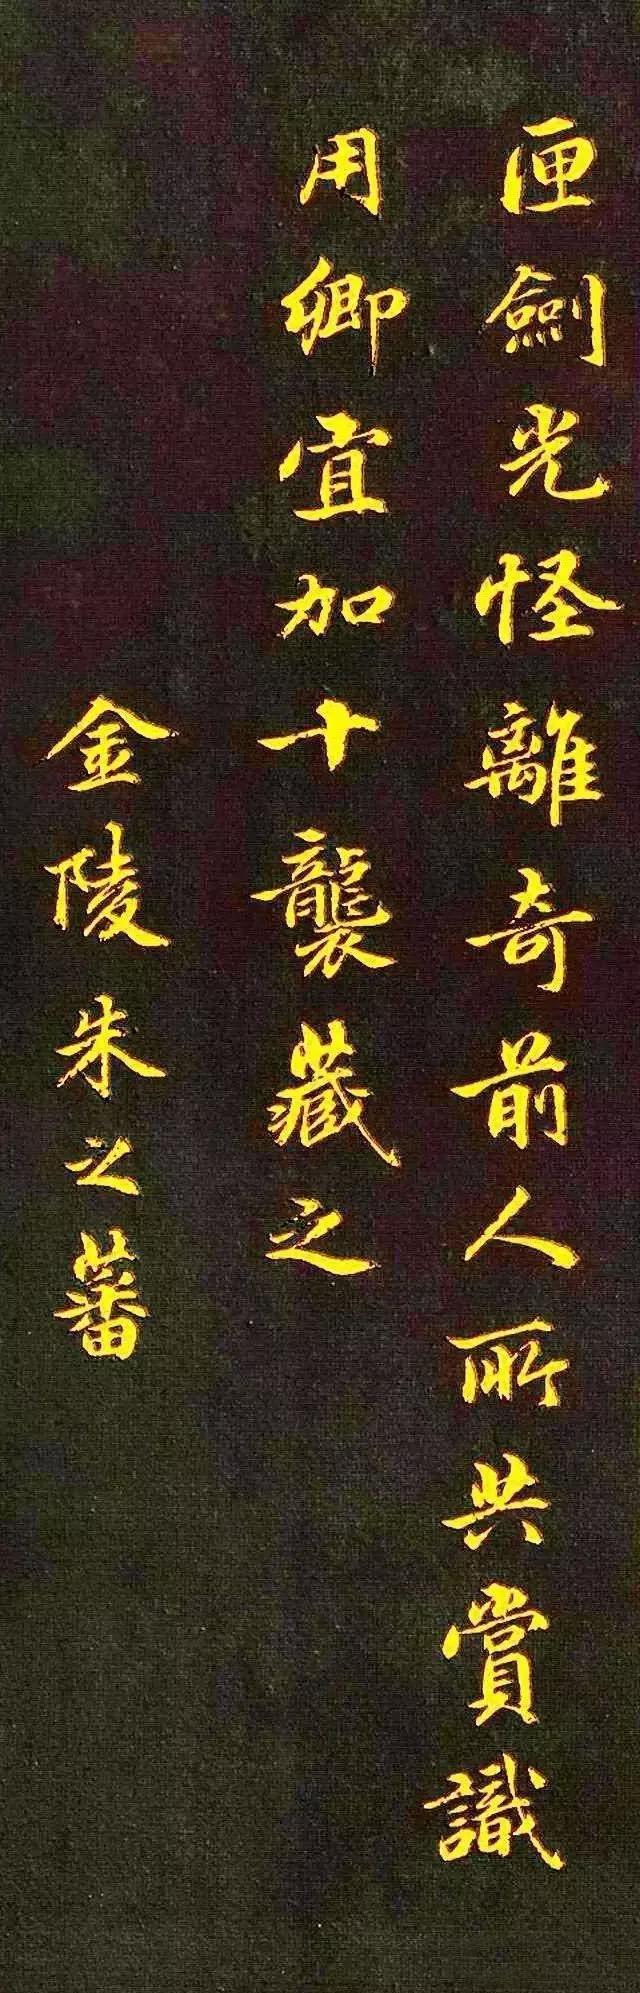 匣劍光怪離奇前人所共賞識
用卿宜加十襲藏之
金陵朱之蕃